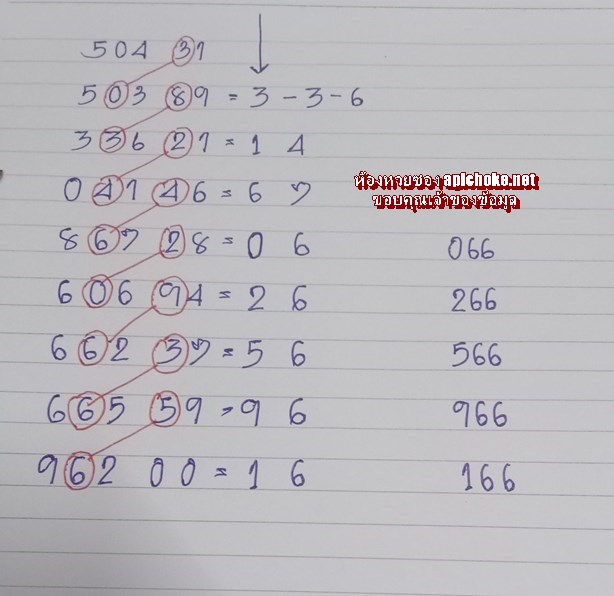 504 31
503 89 = 3 - 3 - 6
336 21 = 1 4
041 46 = 6 7
867 28 = 0 6 066
606 94 = 2 6 266
662 37 = 5 6 566
665 59 = 9 6 966
962 00 = 1 6 166
ห้องหวยซอง apichoke.net
ขอบคุณเจ้าของข้อมูล